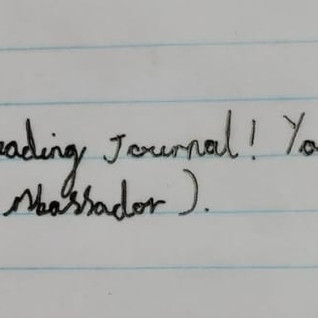 eading Journal! Yo
mbassador).